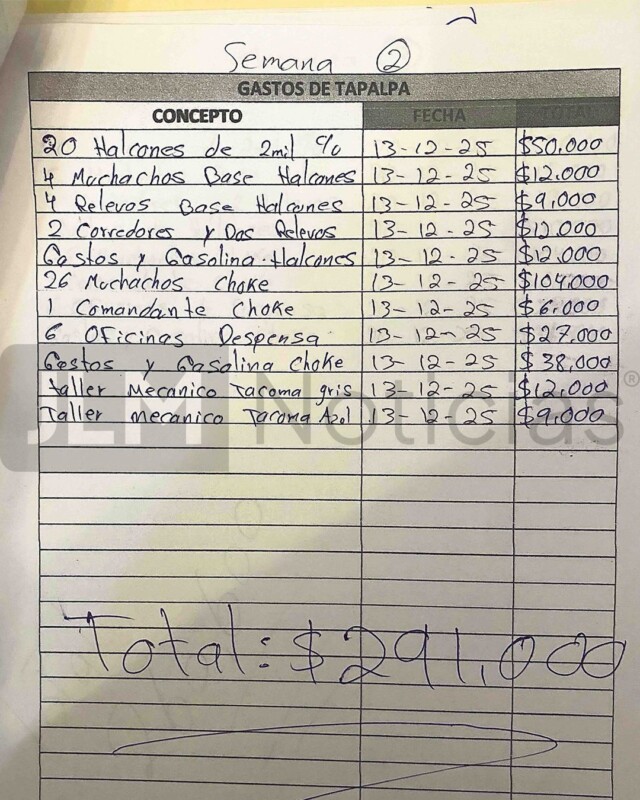 Semana ②
GASTOS DE TAPALPA
CONCEPTO FECHA TOTAL
20 Halcones de 2mil %. 13-12-25 $50,000
4 Muchachos Base Halcones 13-12-25 $12,000
4 Relevos Base Halcones 13-12-25 $9,000
2 Corredores y Dos Relevos 13-12-25 $12,000
Gastos y Gasolina Halcones 13-12-25 $12,000
26 Muchachos Choke 13-12-25 $104,000
1 Comandante Choke 13-12-25 $6,000
6 Oficinas Despensa 13-12-25 $27,000
Gastos y Gasolina Choke 13-12-25 $38,000
Taller Mecanico Tacoma gris 13-12-25 $12,000
Taller mecanico Tacoma Azol 13-12-25 $9,000
Noticias®
Total: $291,000